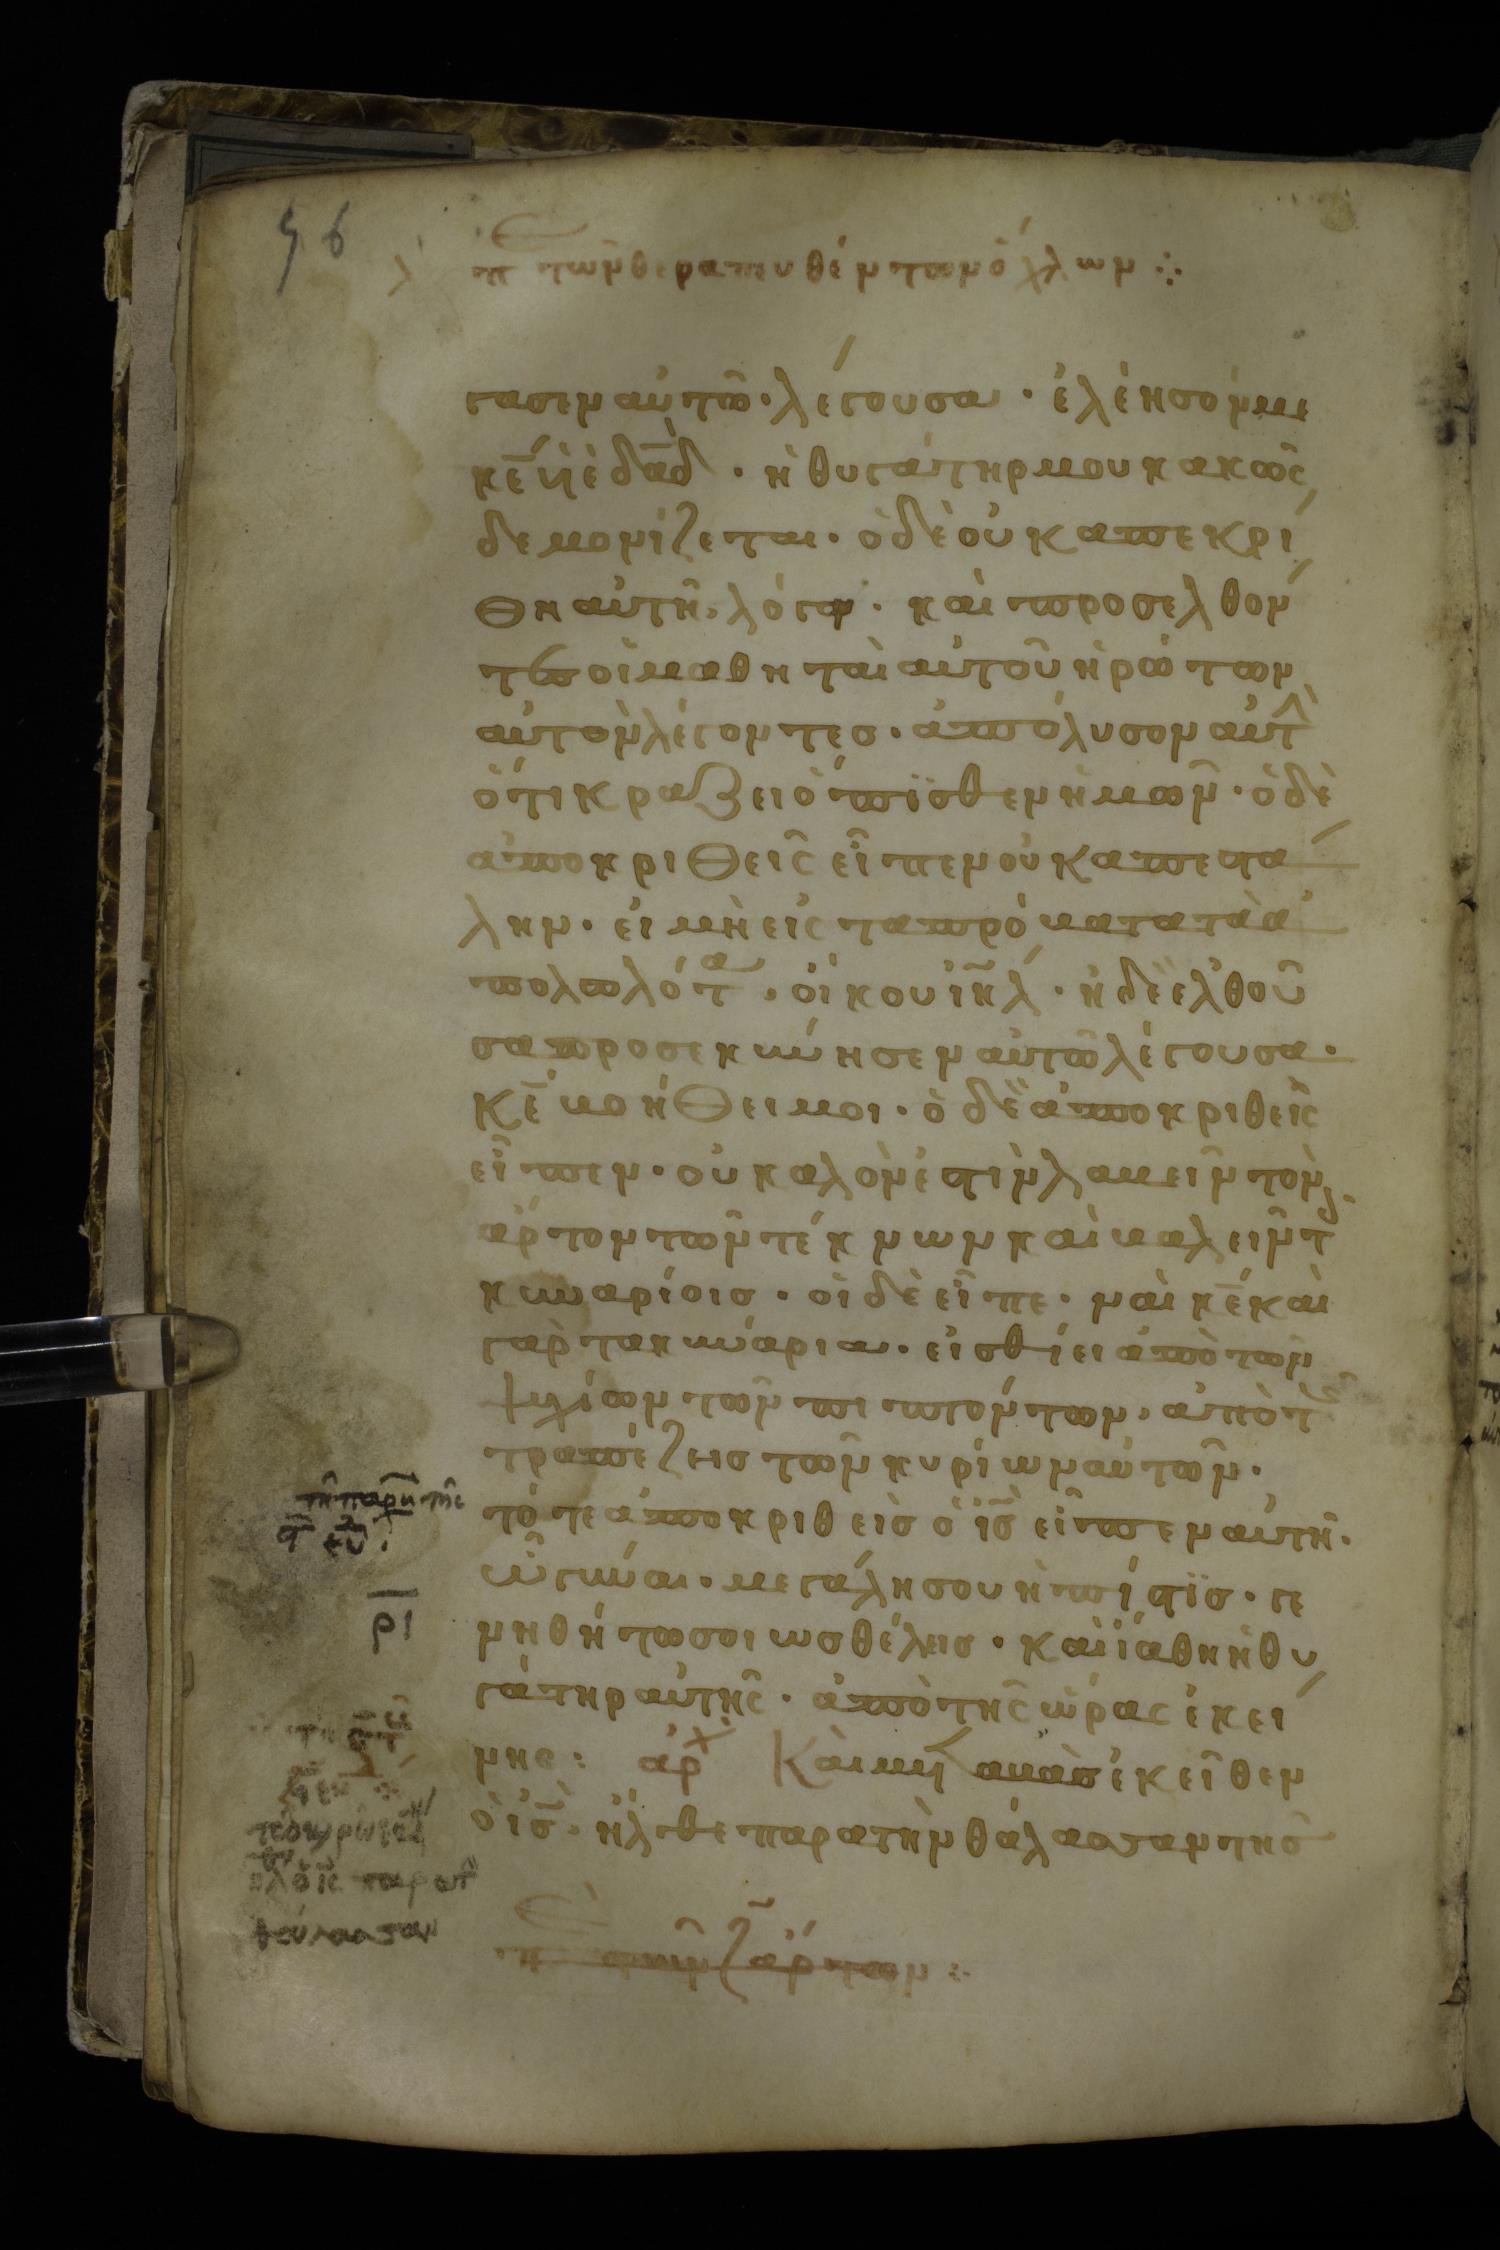 56
λ πε τῶν θεραπευθέντων ὄχλων
γασεν αὐτῶ· λέγουσα· ἐλέησόν με
κ̅ε̅ υἱὲ δα̅δ· ἡ θυγάτηρ μου κακῶς
δεμονίζεται· ὁ δὲ οὐκ απεκρί
θη αὐτῆ, λόγον· καὶ προσελθόν
τες οἱ μαθηταὶ αὐτοῦ ἠρώτων
αὐτὸν λέγοντες· ἀπόλυσον αὐτ
ὅτι κράζει ὄπϊσθεν ἡμῶν· ὁ δὲ
ἀποκριθεὶς εἶπεν οὐκ απεστά
λην· εἰ μὴ εἰς τα πρόβατα τὰ ἀ
πολωλότα· οἴκου ι̅η̅λ· ἡ δὲ ἐλθοῦ
σα προσεκύνησεν αὐτῶ λέγουσα·
κ̅ε̅ βοήθει μοι· ὁ δὲ ἀποκριθεὶς
εἶπεν· οὐ καλὸν ἐστὶν λαβεῖν τὸν
ἄρτον τῶν τέκνων καὶ βαλεῖν τ
κυναρίοις· οἱ δὲ εἶπε· ναὶ κ̅ε̅ καὶ
γὰρ τα κυνάρια· εἰσθίει ἀπὸ τῶν
ψιχίων τῶν πιπτόντων· ἀπὸ τ
τραπέζεις τῶν κυρίων αὐτῶν·
τότε ἀποκριθεὶς ὁ ι̅ς̅ εἶπεν αὐτῆ·
ὦ γύναι· μεγάλη σου ἡ πίστϊς· γε
νηθήτω σοι ως θέλεις· καὶ ϊάθη ἡ θυ
γάτηρ αὐτῆς· ἀπὸ τῆς ὥρας ἐκεί
νης: ἀρχ Καὶ μεταβὰς ἐκεῖθεν
ὁ ι̅ς̅· ἦλθε παρα τὴν θάλασσαν τῆς
ρι
πε τῶν ζ ἄρτων